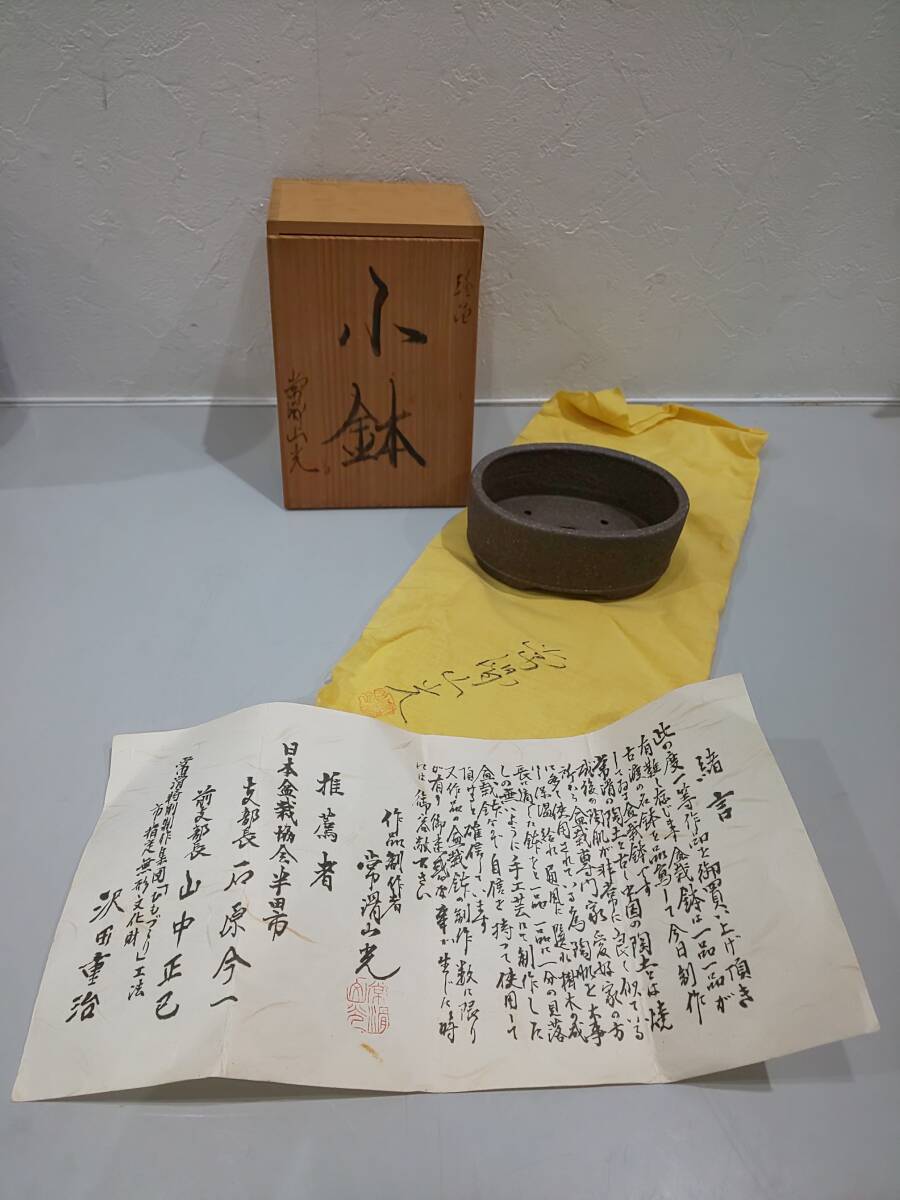 小鉢
常滑山光
常滑山光
緒言
此の度一等作品を御買い上げ頂き
有難う存じます盆栽鉢は一品一品が
古渡の名鉢を品写して今日制作
して居る盆栽鉢です
常滑の陶土は古く中国の陶土とは焼
成後の陶肌が非常に良く似ている
所から盆栽専門家愛好家の方
に多く使用されている為陶肌を大事
に保温給水通風に優れ樹木の成
長に適した鉢を一品一品に一分の見落
し無いように手工芸にて制作した
盆栽鉢なので自信を持って使用して
頂けると確信しています
又作品の盆栽鉢の制作数に限り
が有り御迷惑な事が生じた時
には御容赦下さい
作品制作者
常滑山光
推薦者
日本盆栽協会半田市
支部長 石原今一
前支部長 山中正己
常滑特別制作集団「ひもづくり」工法
市指定無形文化財
沢田重治